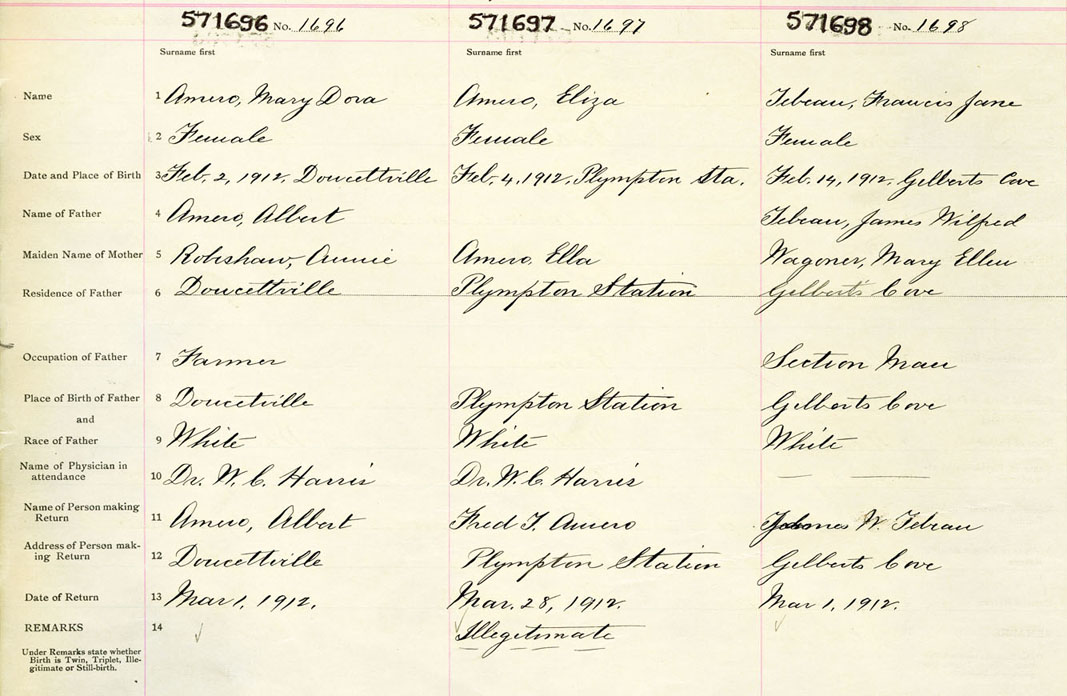 571696 No. 1696 571697 No. 1697 571698 No. 1698
Surname first Surname first Surname first
Name 1 Amero, Mary Dora Amero, Eliza Tebeau, Francis Jane
Sex 2 Female Female Female
Date and Place of Birth 3 Feb. 2, 1912. Doucettville Feb. 4, 1912. Plympton Sta. Feb. 14, 1912. Gilberts Cove
Name of Father 4 Amero, Albert Tebeau, James Wilfred
Maiden Name of Mother 5 Robishaw, Annie Amero, Ella Wagoner, Mary Ellen
Residence of Father 6 Doucettville Plympton Station Gilberts Cove
Occupation of Father 7 Farmer Section Man
Place of Birth of Father 8 Doucetville Plympton Station Gilberts Cove
and
Race of Father 9 White White White
Name of Physician in
attendance 10 Dr. W. C. Harris Dr. W. C. Harris
Name of Person making
Return 11 Amero, Albert Fred T. Amero James W. Tebeau
Address of Person mak-
ing Return 12 Doucettville Plympton Station Gilberts Cove
Date of Return 13 Mar 1, 1912. Mar. 28, 1912. Mar 1, 1912.
REMARKS 14 Illegitimate
Under Remarks state whether
Birth is Twin, Triplet, Ille-
gitimate or Still-birth.